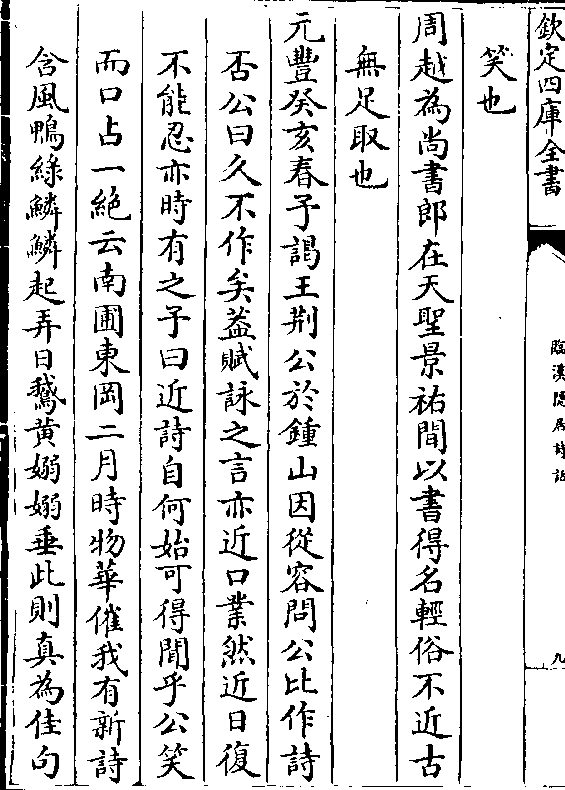 欽定四庫全書
臨漢隱居詩話
九
笑也
周越為尚書郎在天聖景祐間以書得名輕俗不近古
無足取也
元豐癸亥春予謁王荆公於鍾山因從容問公比作詩
否公曰久不作矣葢賦詠之言亦近口業然近日復
不能忍亦時有之予曰近詩自何始可得聞乎公笑
而口占一絶云南圃東岡二月時物華催我有新詩
含風鴨綠鱗鱗起弄日鵞黄嫋嫋垂此則真為佳句